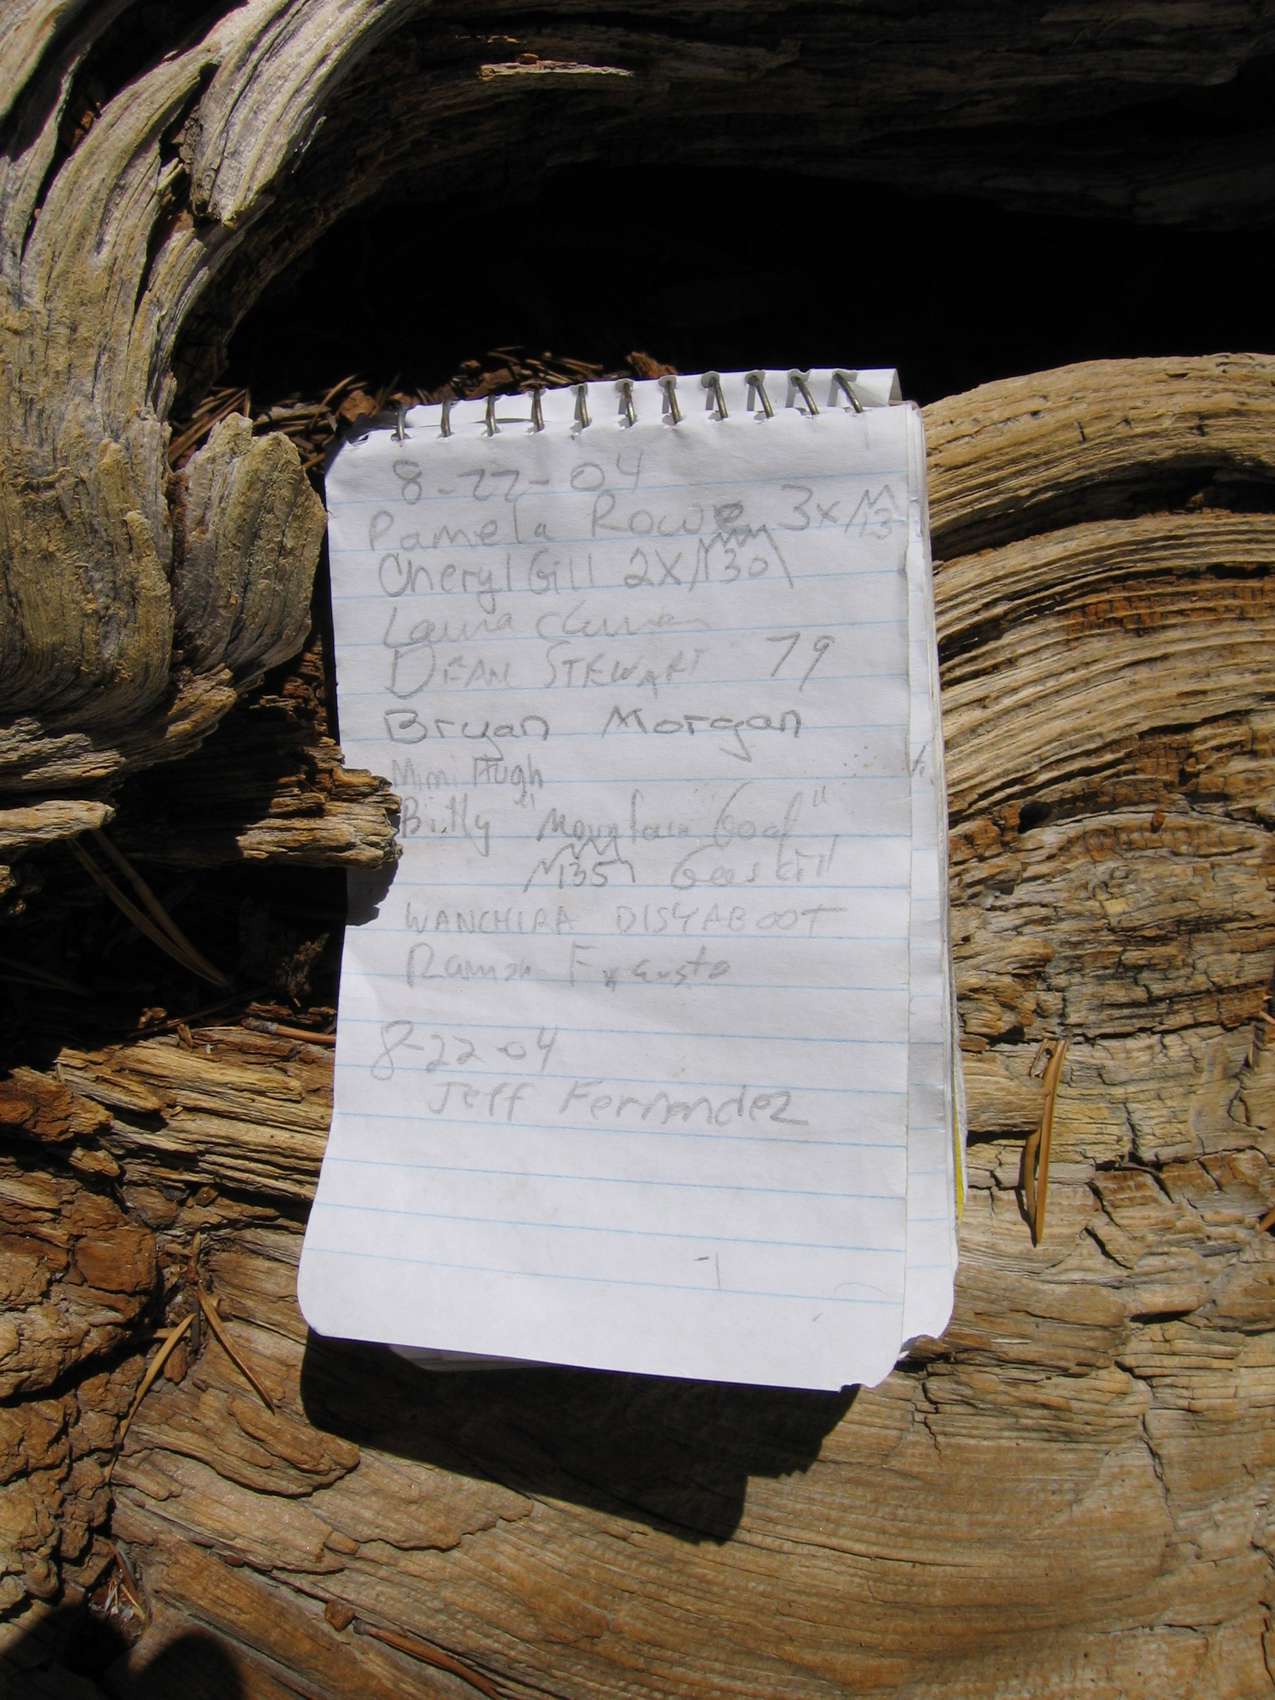 8-22-04
Pamela Rowe 3x/
Cheryl Gill 2X
Laura
DEAN STEWART 79
Bryan Morgan
Mimi Hugh
Billy "Mountain Goat"
WANCHIRA DISYABOOT
Ramon
8-22-04
Jeff Fernandez